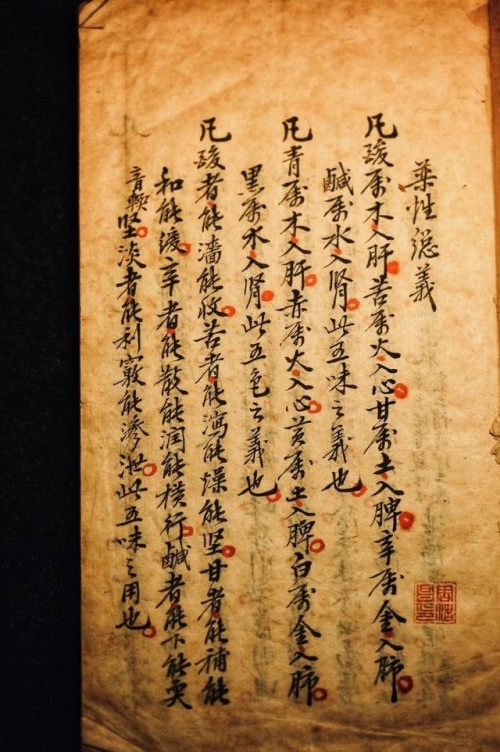 藥性總義
凡酸属木入肝苦属火入心甘属土入脾辛属金入肺
鹹属水入腎此五味之義也
凡青属木入肝赤属火入心黄属土入脾白属金入肺
黑属水入腎此五色之義也
凡酸者能濇能收苦者能瀉能燥能坚甘者能補能
和能緩辛者能散能潤能横行鹹者能下能耎
音軟坚淡者能利竅能滲泄此五味之用也